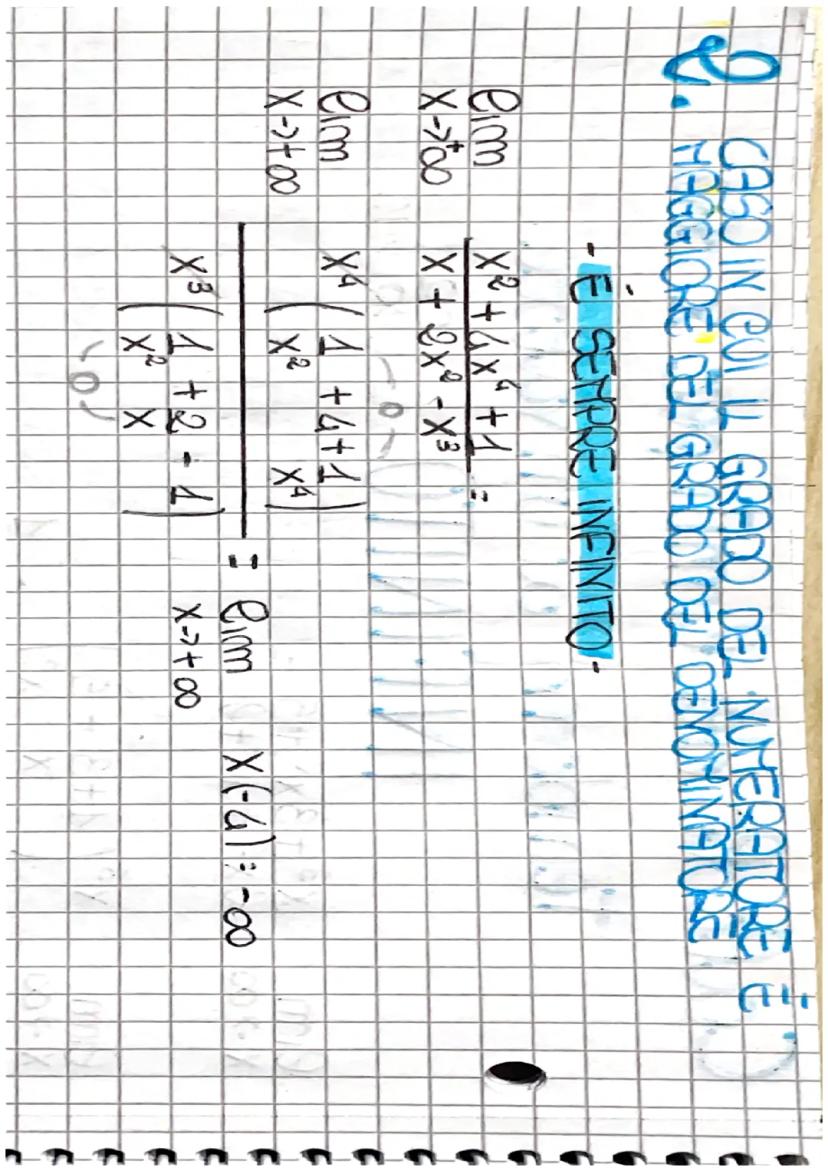 2. CASO IN CUI IL GRADO DEL NUMERATORE È
MAGGIORE DEL GRADO DEL DENOMINATORE
- È SEMPRE INFINITO -
lim x²+4x⁴+1
x→+∞ x+2x²-x³ =
-0-
lim x⁴ (1 + 4 + 1)
x→+∞ x² x⁴
= lim x(-4) = -∞
x→+∞
x³ (1 + 2 - 1)
x² x
-0-